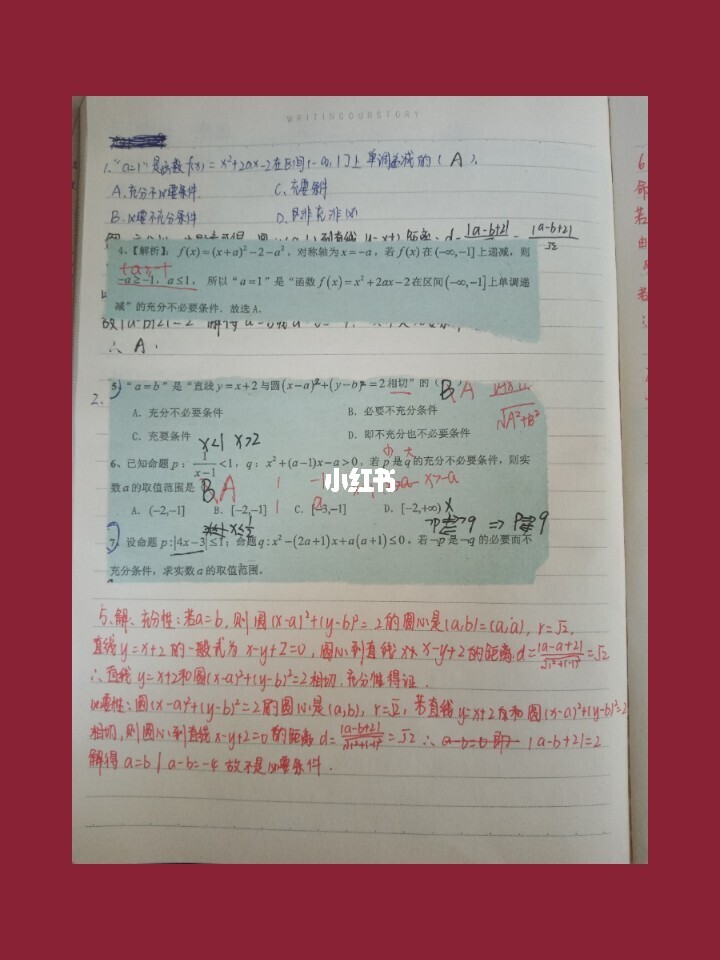 WRITINGOURSTORY
1. "a=1"是函数f(x)=x²+2ax-2在区间(-∞,1]上单调递减的( A ).
A.充分不必要条件 C.充要条件
B.必要不充分条件 D.既非充非必
到直线 距离: d=|a-b+2| = |a-b+2|
√2
4.【解析】f(x)=(x+a)²-2-a²，对称轴为x=-a，若f(x)在(-∞,-1]上递减，则
-a≥-1，a≤1，所以“a=1”是“函数f(x)=x²+2ax-2在区间(-∞,-1]上单调递
减”的充分不必要条件．故选A．
∴ A.
2. 5、“a=b”是“直线y=x+2与圆(x-a)²+(y-b)²=2相切”的( B A
√A²+B²
A．充分不必要条件 B．必要不充分条件
C．充要条件 D．即不充分也不必要条件
x<1 x>2
6、已知命题p：1/(x-1)<1，q：x²+(a-1)x-a>0，若p是q的充分不必要条件，则实
数a的取值范围是 B A x>-a
A．(-2,-1] B．[-2,-1] C．[-3,-1] D．[-2,+∞)
小红书
7、设命题p:|4x-3|≤1；命题q:x²-(2a+1)x+a(a+1)≤0，若¬p是¬q的必要而不
充分条件，求实数a的取值范围。
5、解: 充分性:若a=b, 则圆(x-a)²+(y-b)²=2的圆心是(a,b)=(a,a), r=√2,
直线y=x+2的一般式为x-y+2=0, 圆心到直线x-y+2的距离d=|a-a+2|/√1²+(-1)²=√2
∴直线y=x+2和圆(x-a)²+(y-b)²=2相切.充分性得证.
必要性:圆(x-a)²+(y-b)²=2的圆心是(a,b), r=√2, 若直线y=x+2和圆(x-a)²+(y-b)²=2
相切,则圆心到直线x-y+2=0的距离d=|a-b+2|/√1²+(-1)²=√2 ∴ |a-b+2|=2
解得a=b / a-b=-4 故不是必要条件.